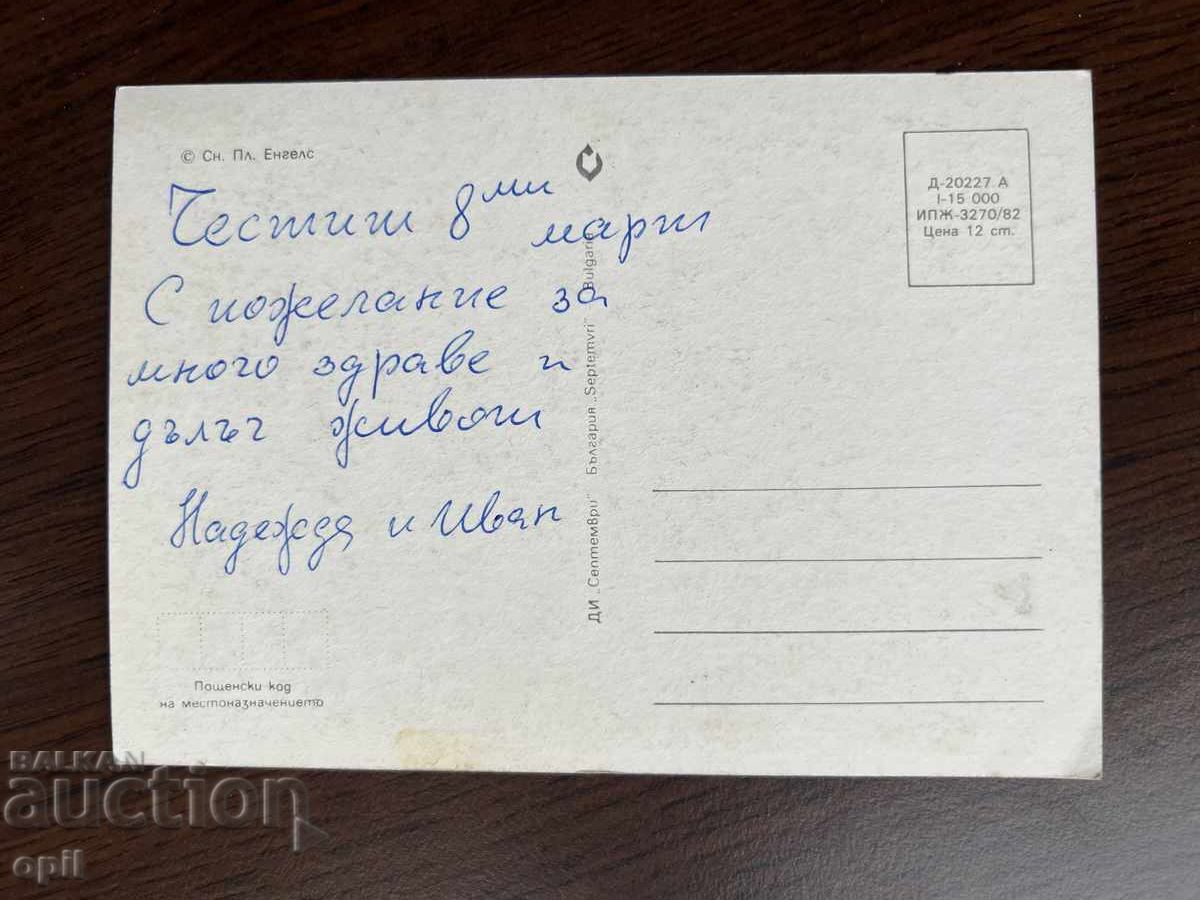 © Сн. Пл. Енгелс
Честит 8ми
март
С пожелание за
много здраве и
дълъг живот
Надежда и Иван
Пощенски код
на местоназначението
ДИ „Септември" България „Septemvri" Bulgaria
Д-20227 А
I-15 000
ИПЖ-3270/82
Цена 12 ст.
BALKAN
auction
opil